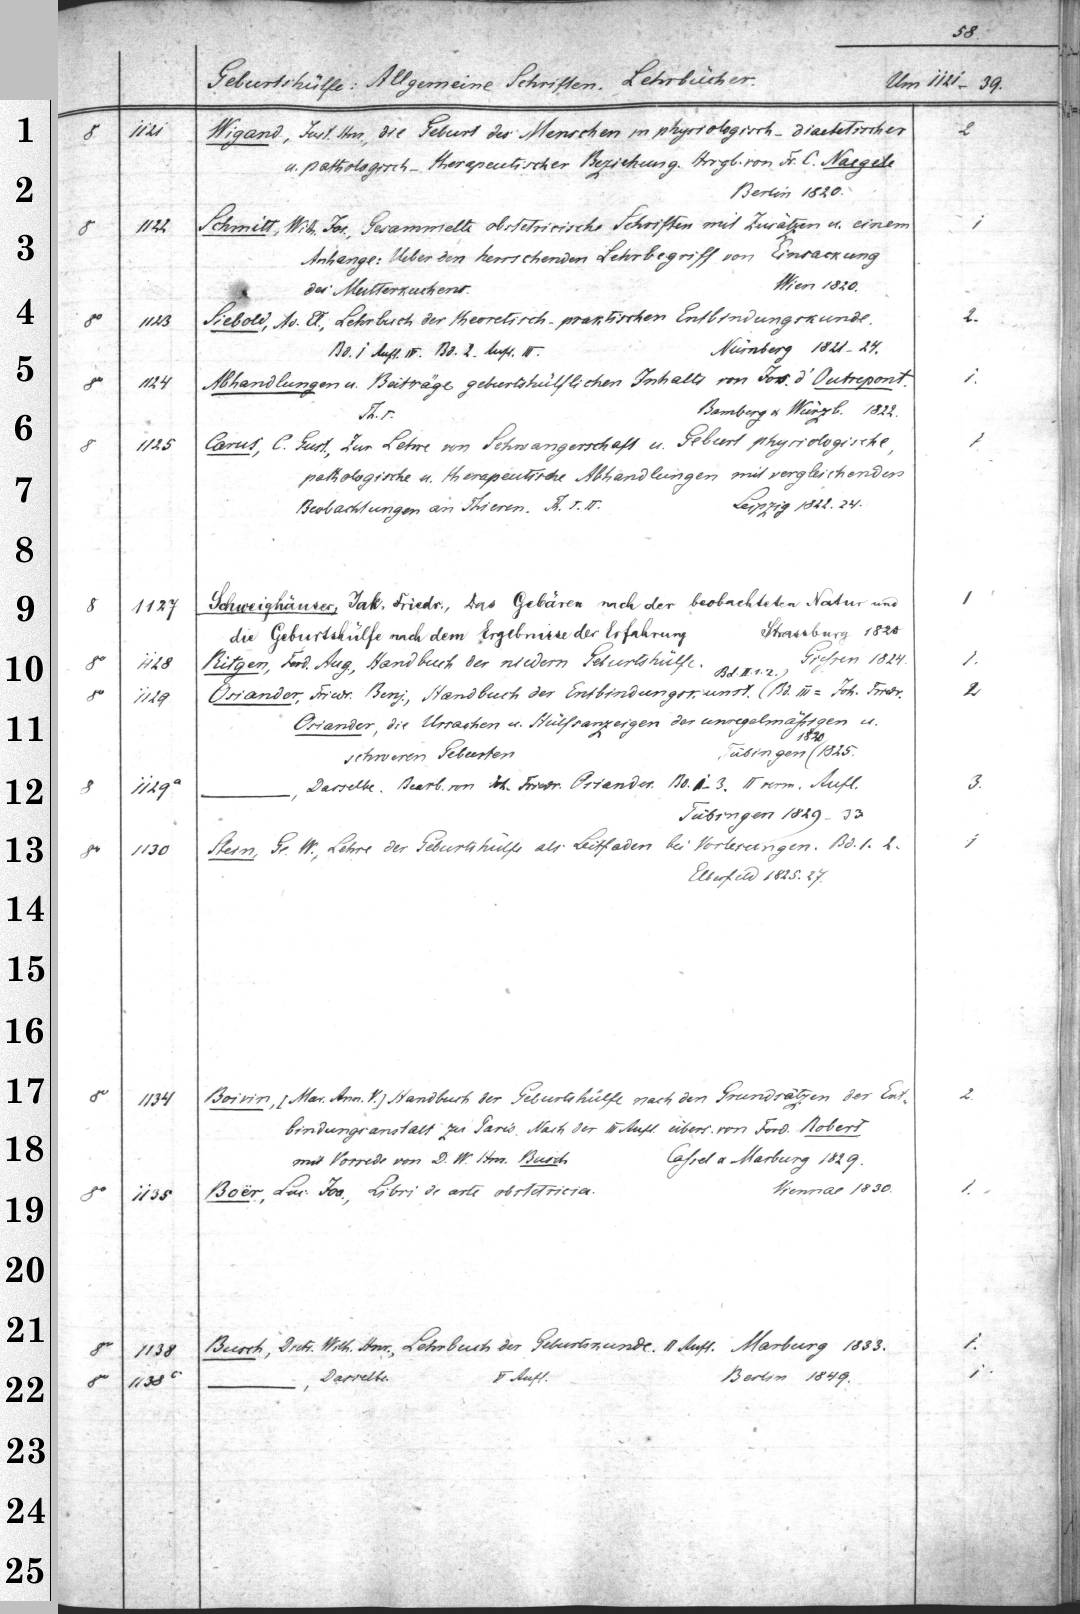 58
Geburtshülfe: Allgemeine Schriften. Lehrbücher. Um 1121-39.
1 8 1121 Wigand, Just. Hnr., die Geburt des Menschen in physiologisch-diaetetischer 2
u. pathologisch-therapeutischer Beziehung. Hrsgb. von Fr. C. Naegele
2 Berlin 1820.
8 1122 Schmitt, Wilh. Jos., Gesammelte obstetricische Schriften mit Zusätzen u. einem 1
3 Anhange: Ueber den herrschenden Lehrbegriff von Einsackung
des Mutterkuchens. Wien 1820.
4 8o 1123 Siebold, Ad. El., Lehrbuch der theoretisch-praktischen Entbindungskunde. 2.
Bd. 1 Aufl. IV. Bd. 2. Aufl. III. Nürnberg 1821-24.
5 8o 1124 Abhandlungen u. Beiträge geburtshülflichen Inhalts von Jos. d'Outrepont. 1.
6 Th. I. Bamberg & Würzb. 1822.
8 1125 Carus, C. Gust., Zur Lehre von Schwangerschaft u. Geburt physiologische, 1
7 pathologische u. therapeutische Abhandlungen mit vergleichenden
Beobachtungen an Thieren. Th. I. II. Leipzig 1822. 24.
8
9 8 1127 Schweighäuser, Jak. Friedr., Das Gebären nach der beobachteten Natur und 1
die Geburtshülfe nach dem Ergebnisse der Erfahrung Strassburg 1825
10 8o 1128 Ritgen, Ferd. Aug., Handbuch der niedern Geburtshülfe. Giessen 1824. 1.
Bd. II. 1. 2.)
8o 1129 Osiander, Friedr. Benj., Handbuch der Entbindungskunst. (Bd. III = Joh. Friedr. 2
11 Osiander, die Ursachen u. Hülfsanzeigen der unregelmäßigen u.
1820
schweren Geburten Tübingen (1825.
12 8 1129a ———, Dasselbe. Bearb. von Joh. Friedr. Osiander. Bd. 1-3. II verm. Aufl. 3.
Tübingen 1829-33
13 8o 1130 Stein, Ge. W., Lehre der Geburtshülfe als Leitfaden bei Vorlesungen. Bd. 1. 2. 1
Elberfeld 1825. 27.
14
15
16
17 8o 1134 Boivin, [Mar. Ann. V.] Handbuch der Geburtshülfe nach den Grundsätzen der Ent- 2
bindungsanstalt zu Paris. Nach der III Aufl. übers. von Ferd. Robert
18 mit Vorrede von D. W. Hnr. Busch Cassel & Marburg 1829.
8o 1135 Boër, Luc. Joa., Libri de arte obstetricia. Viennae 1830. 1.
19
20
21 8o 1138 Busch, Dietr. Wilh. Hnr., Lehrbuch der Geburtskunde. II Aufl. Marburg 1833. 1.
22 8o 1138c ———, Dasselbe. V Aufl. Berlin 1849. 1.
23
24
25